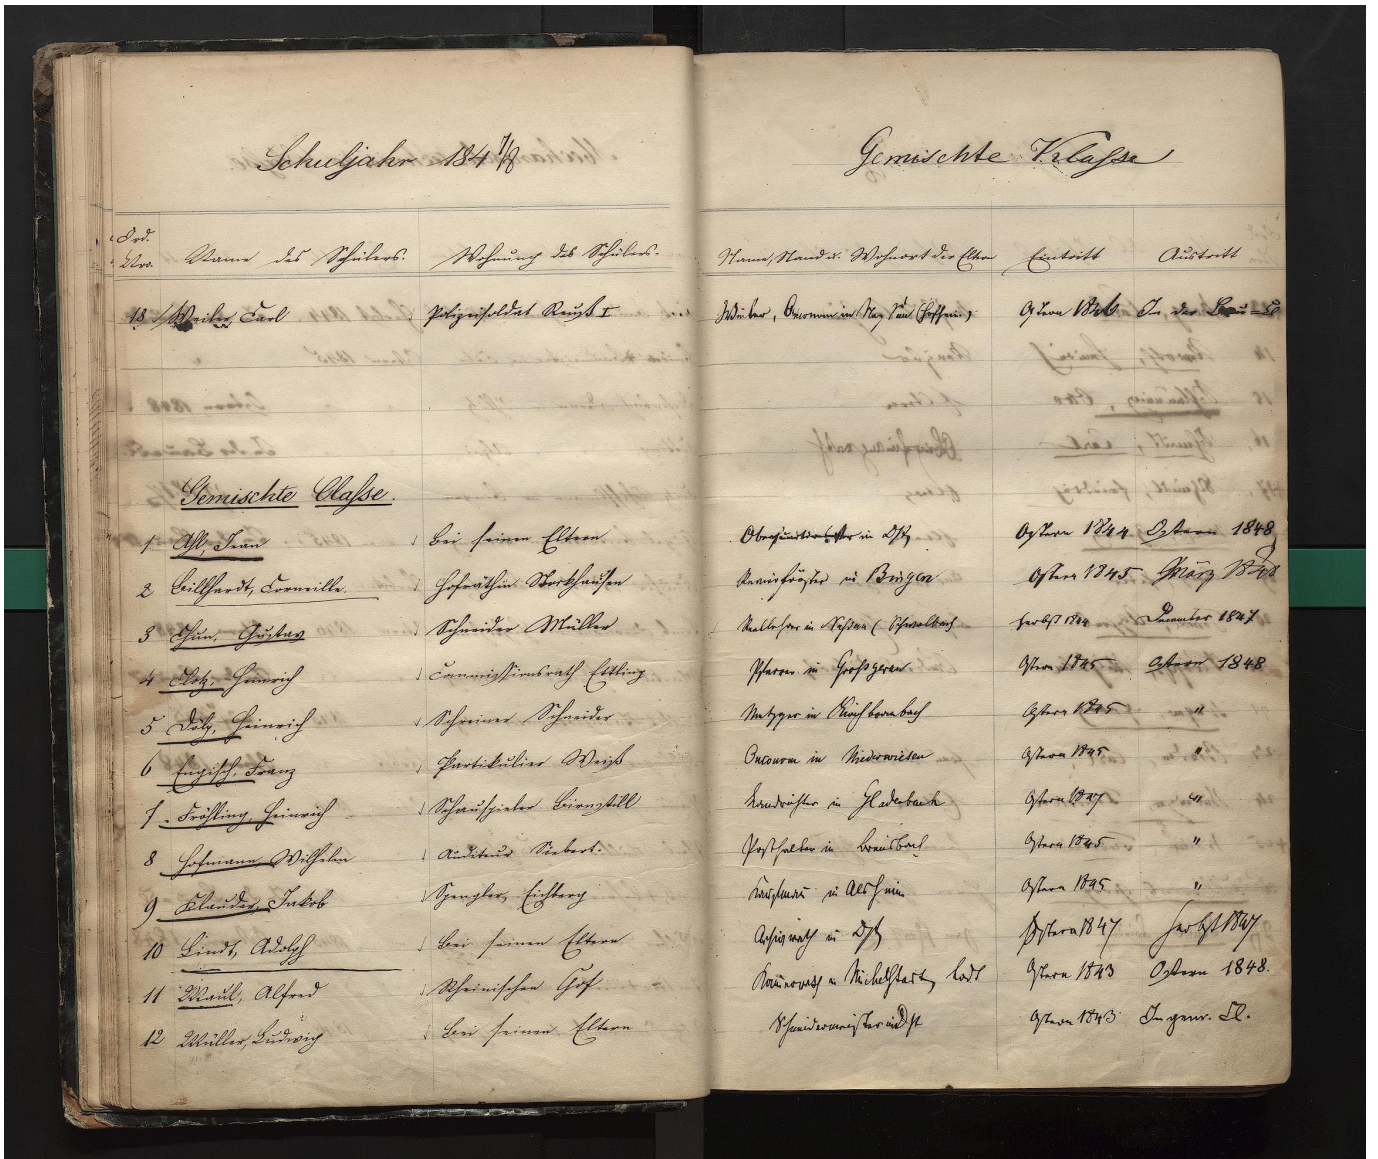 Schuljahr 184 7/8
Gemischte Klasse
Ord. Nro. Name des Schülers. Wohnung des Schülers. Name, Stand u. Wohnort der Eltern Eintritt Austritt
18 Weiler, Carl Polizeisoldat I in Ostern 1846 In der
Gemischte Classe.
1 Ahl, Jean bei seinen Eltern in Dst Ostern 1844 Ostern 1848
2 Billhardt, Corneille. Hofräthin Storkhausen Revierförster in Bingen Ostern 1845 März 1848
3 Thun, Gustav Schneider Müller Reallehrer in Schwalbach Herbst 1844 December 1847
4 Klotz, Heinrich Commissionsrath Ettling Pfarrer in Großgerau Ostern 1845 Ostern 1848
5 Dölz, Heinrich Schreiner Schneider Metzger in Kirchbrombach Ostern 1845 "
6 Engisch, Franz Partikulier Weiß Oeconom in Niederwiesen Ostern 1845 "
7 Fröhling, Heinrich Schauspieler Birnstill Landrichter in Gladenbach Ostern 1847 "
8 Hofmann, Wilhelm Auditeur Siebert. Posthalter in Brensbach Ostern 1845 "
9 Klauder, Jakob Spengler, Eichberg Kaufmann in Alsheim Ostern 1845 "
10 Lindt, Adolph bei seinen Eltern Archivrath in Dst Ostern 1847 Herbst 1847
11 Maul, Alfred Rheinischen Hof Kammerrath in Michelstadt, todt Ostern 1843 Ostern 1848.
12 Müller, Ludwig bei seinen Eltern Schneidermeister in Dst Ostern 1843 In gew. Cl.